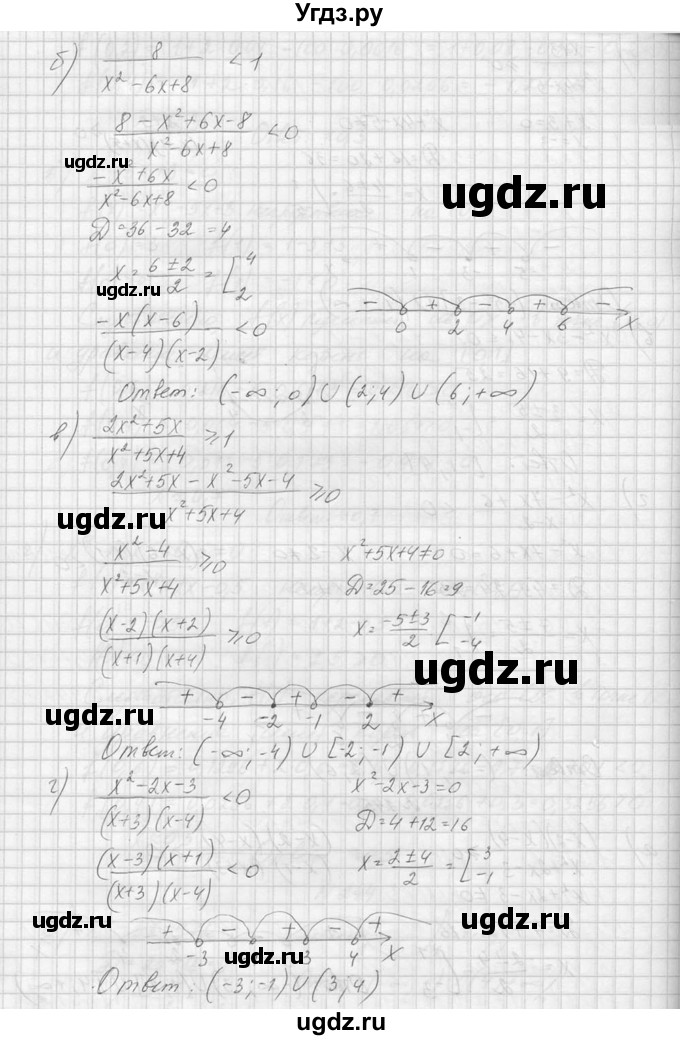 Угдз.ру
б) 8/(x² – 6x + 8) < 1
(8 – x² + 6x – 8)/(x² – 6x + 8) < 0
ugdz.ru
(–x² + 6x)/(x² – 6x + 8) < 0
ugdz.ru
D = 36 – 32 = 4
x = (6 ± 2)/2 = [4 2
ugdz.ru
– + – + –
0 2 4 6 x
–x(x–6)/((x–4)(x–2)) < 0
Ответ: (–∞; 0) ∪ (2; 4) ∪ (6; +∞)
в) (2x² + 5x)/(x² + 5x + 4) ≥ 1
(2x² + 5x – x² – 5x – 4)/(x² + 5x + 4) ≥ 0
ugdz.ru
ugdz.ru
(x² – 4)/(x² + 5x + 4) ≥ 0 x² + 5x + 4 ≠ 0
D = 25 – 16 = 9
(x–2)(x+2)/((x+1)(x+4)) ≥ 0 x = (–5 ± 3)/2 [–1 –4
ugdz.ru
+ – + – +
–4 –2 –1 2 x
ugdz.ru
Ответ: (–∞; –4) ∪ [–2; –1) ∪ [2; +∞)
г) (x² – 2x – 3)/((x+3)(x–4)) < 0 x² – 2x – 3 = 0
D = 4 + 12 = 16
(x–3)(x+1)/((x+3)(x–4)) < 0 x = (2 ± 4)/2 = [3 –1
ugdz.ru
ugdz.ru
+ – + – +
–3 3 4 x
ugdz.ru
Ответ: (–3; –1) ∪ (3; 4)
ugdz.ru